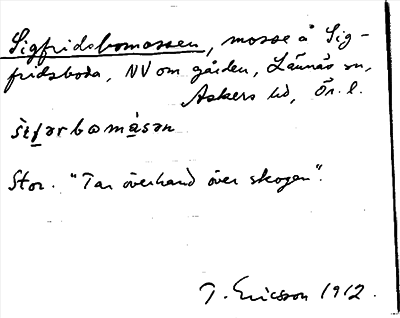 Sigfridsbomossen, mosse å Sig-
fridsboda, NV om gården, Lännäs sn,
Askers hd, Ör. l.
Stor. "Tar överhand över skogen".
T. Ericsson 1912.